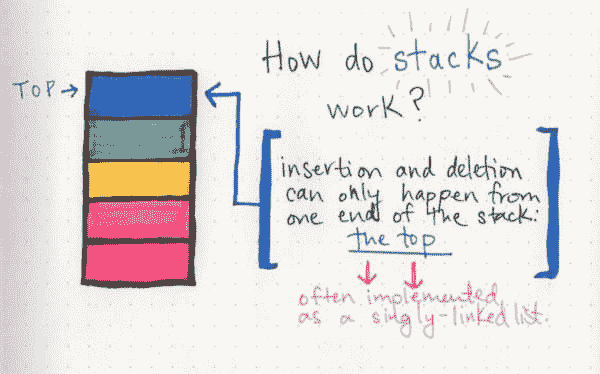 How do stacks
work?
TOP →
insertion and deletion
can only happen from
one end of the stack:
the top
often implemented
as a singly-linked list.